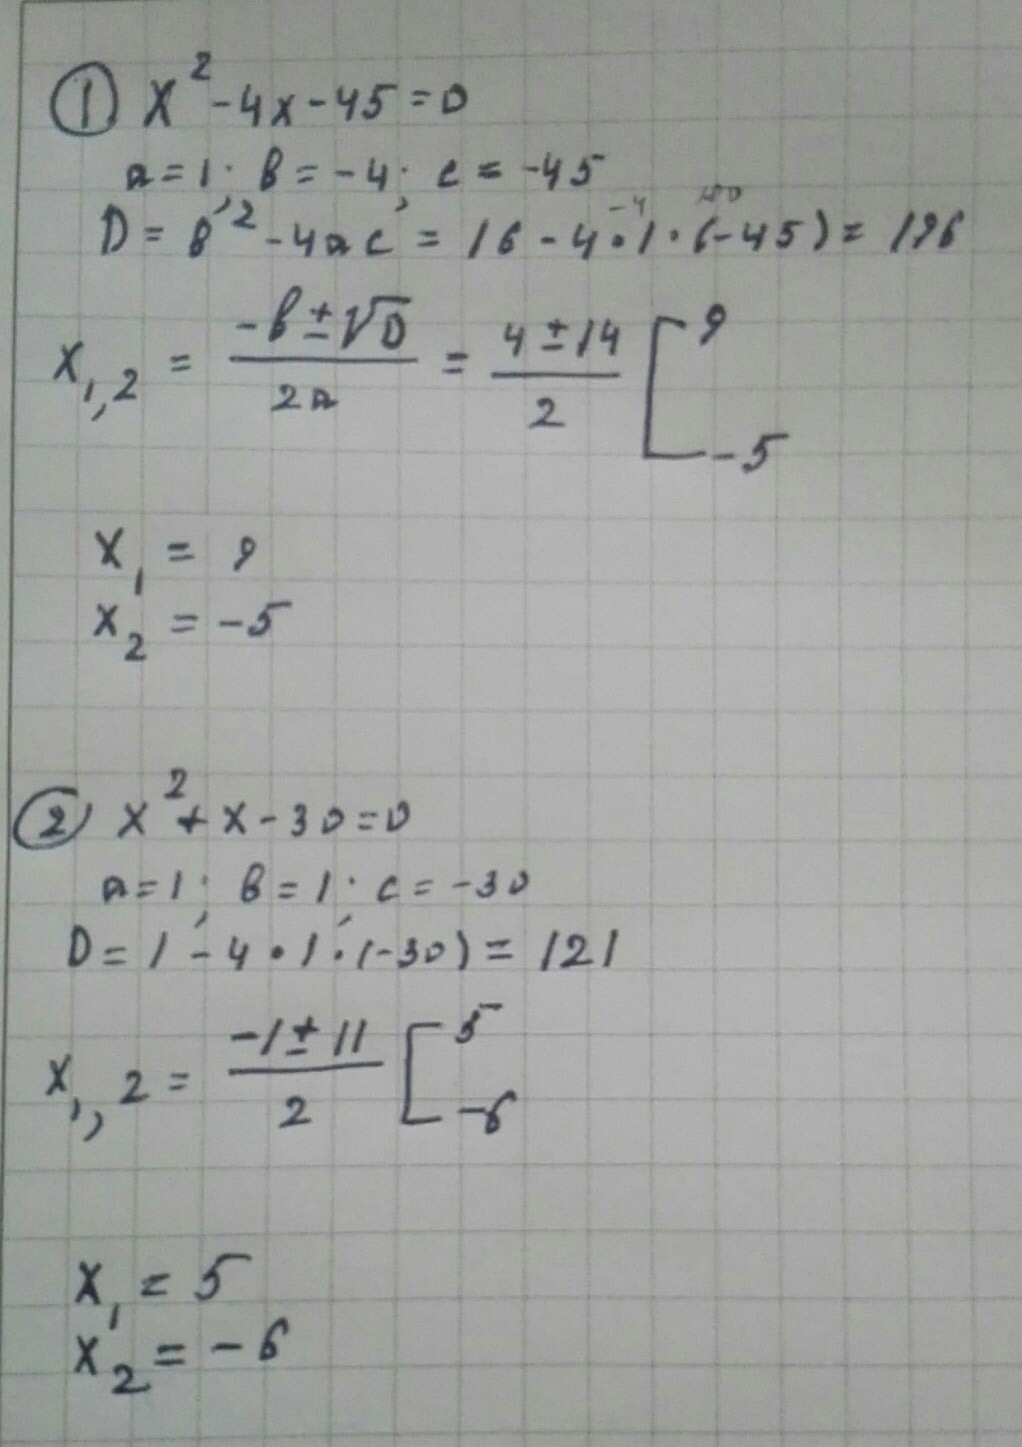 ① x² - 4x - 45 = 0
a = 1; b = -4; c = -45
D = b² - 4ac = 16 - 4 · 1 · (-45) = 196
x₁,₂ = (-b ± √D) / 2a = (4 ± 14) / 2 [ 9
-5
x₁ = 9
x₂ = -5
② x² + x - 30 = 0
a = 1; b = 1; c = -30
D = 1 - 4 · 1 · (-30) = 121
x₁,₂ = (-1 ± 11) / 2 [ 5
-6
x₁ = 5
x₂ = -6